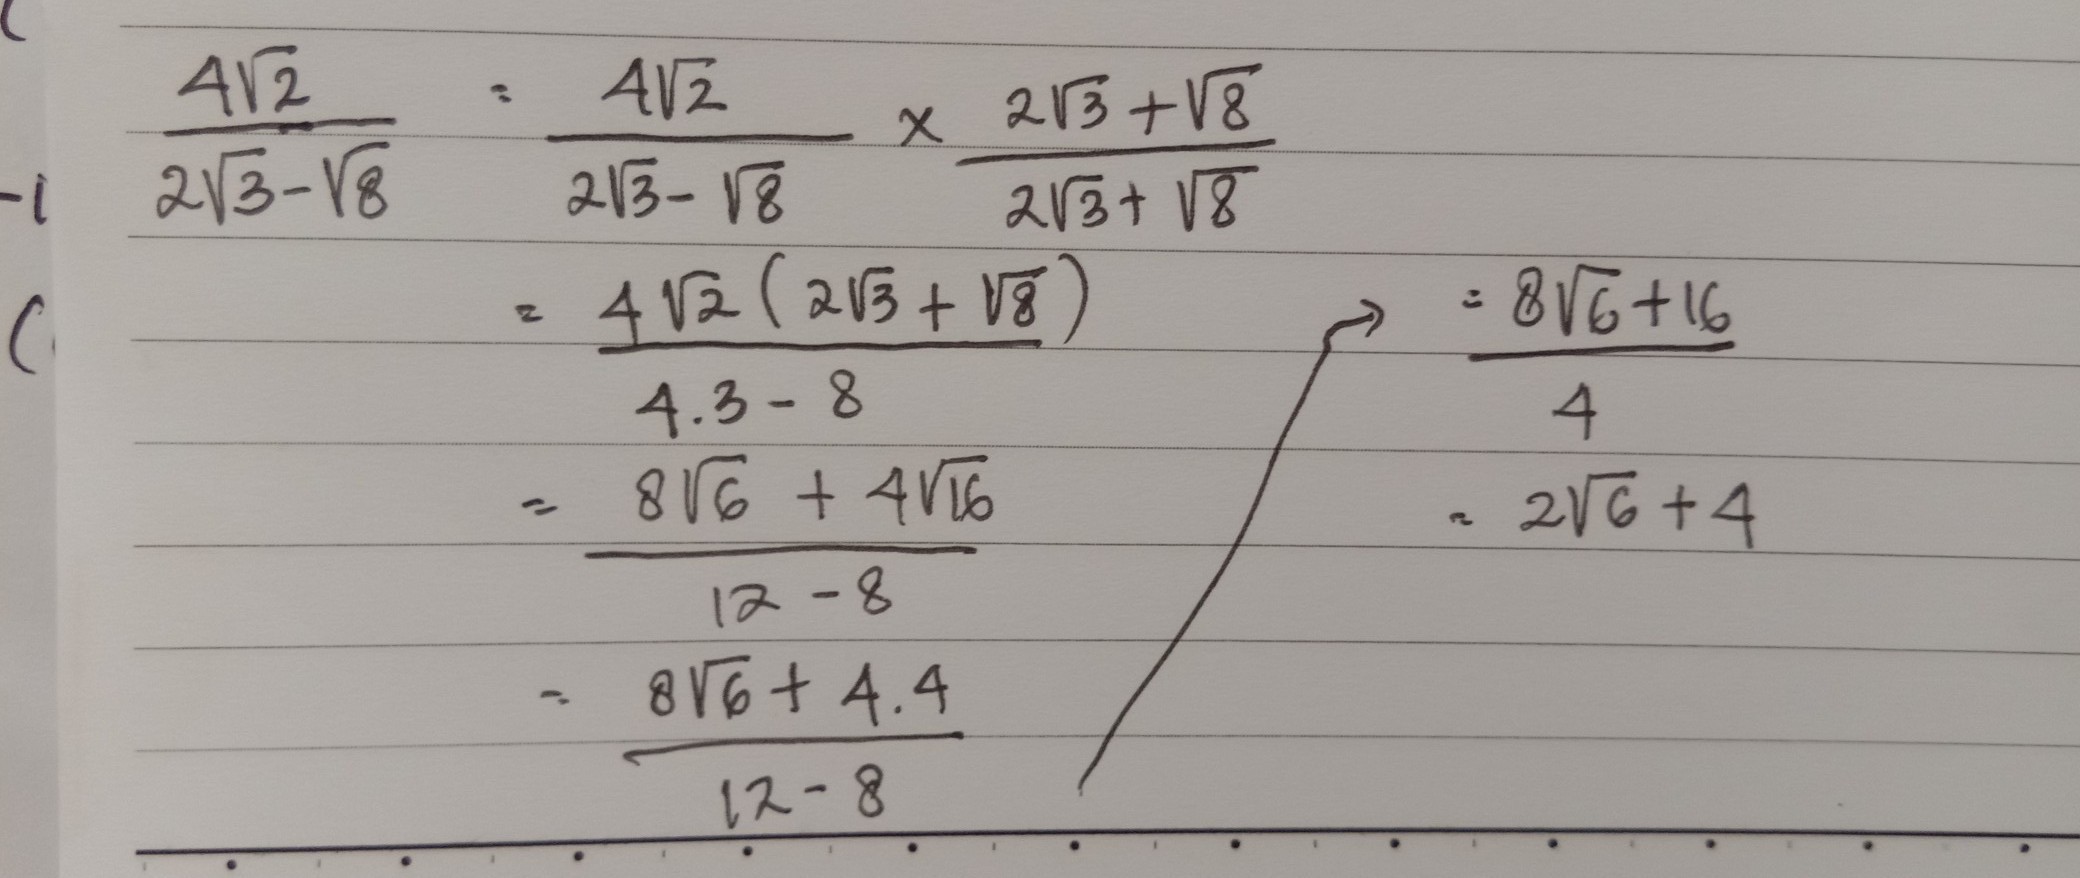 4√2 / 2√3-√8 = 4√2 / 2√3-√8 × 2√3+√8 / 2√3+√8
= 4√2(2√3+√8) / 4.3-8
= 8√6 + 4√16 / 12-8
= 8√6+4.4 / 12-8
→ = 8√6+16 / 4
= 2√6+4
-1
(